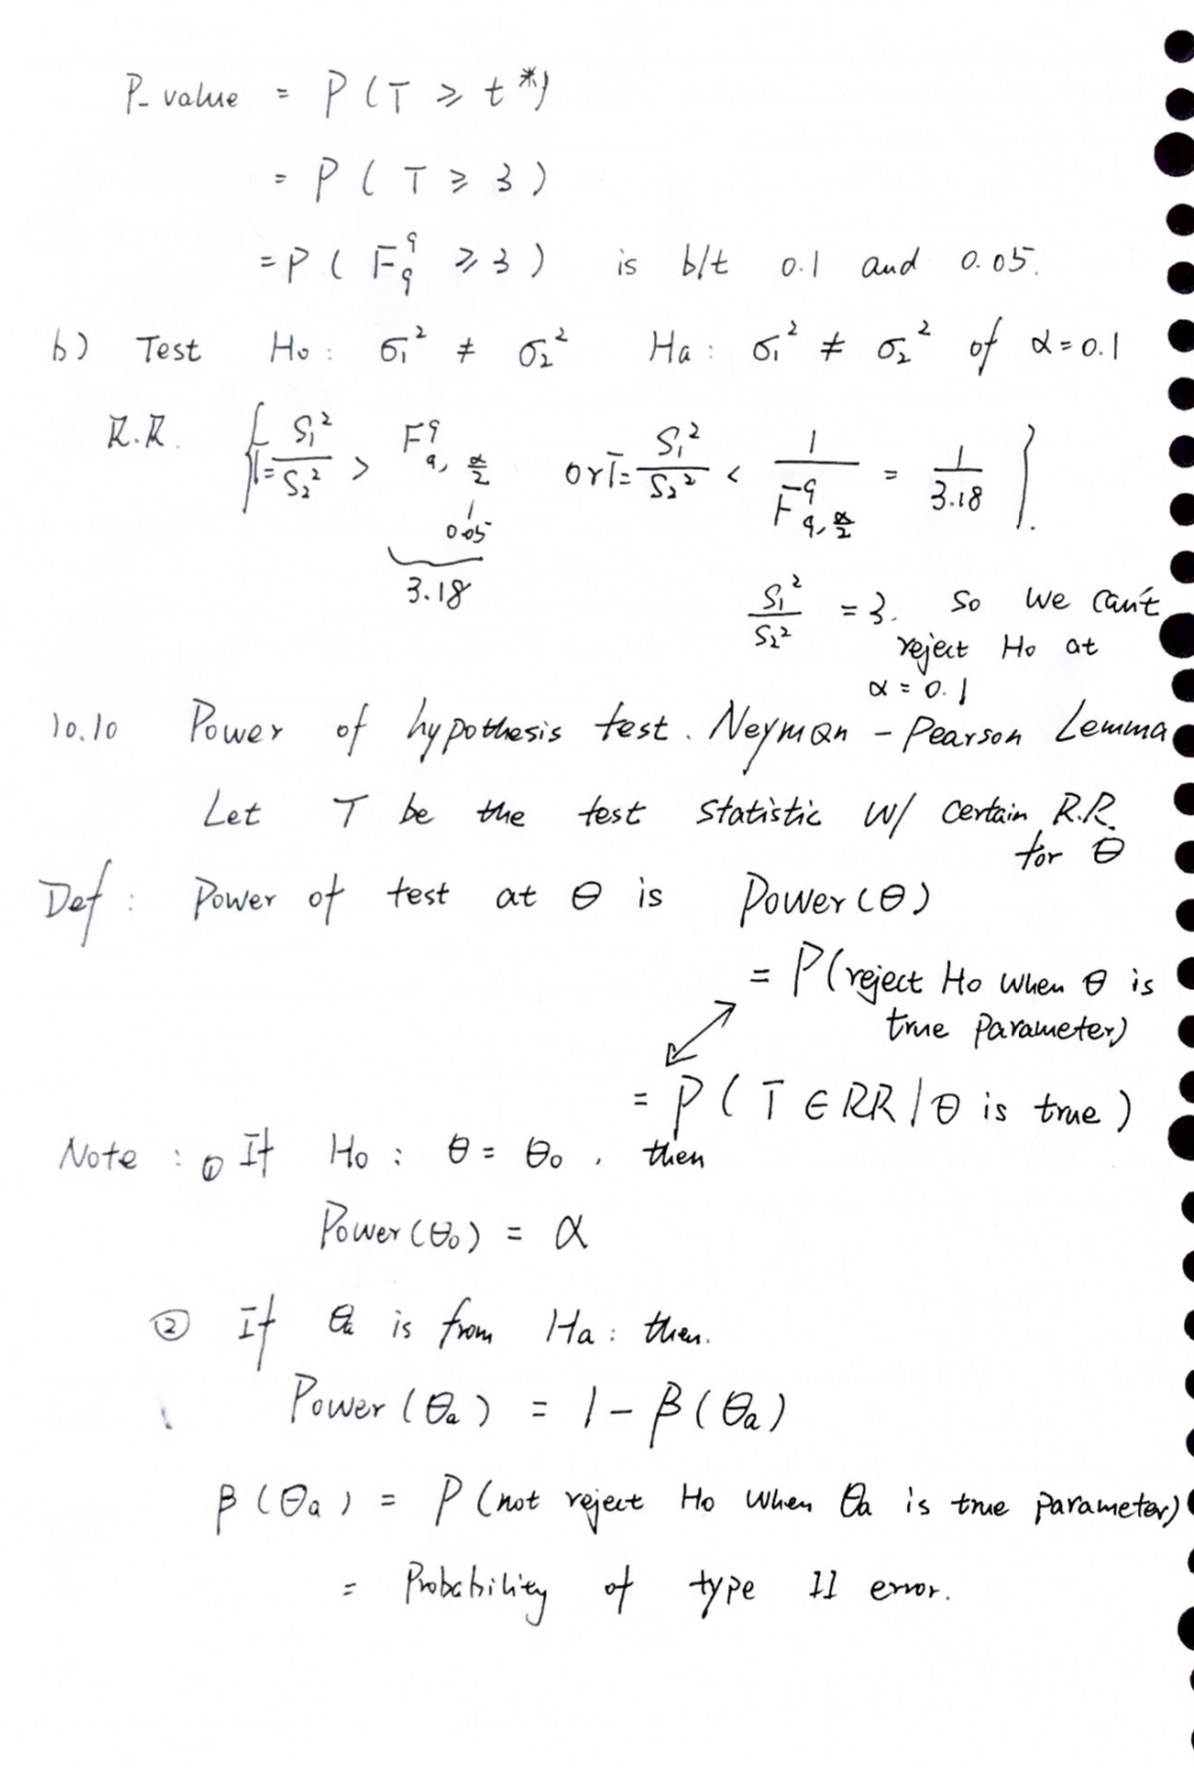 P-value = P(T ≥ t*)
= P(T ≥ 3)
= P(F⁹₉ ≥ 3) is b/t 0.1 and 0.05.
b) Test Ho: σ₁² ≠ σ₂² Ha: σ₁² ≠ σ₂² of α=0.1
R.R. { T = S₁²/S₂² > F⁹₉,α/2 or T = S₁²/S₂² < 1/F⁹₉,α/2 = 1/3.18 }.
0.05
3.18
S₁²/S₂² = 3. so we can't
reject Ho at
α = 0.1
10.10 Power of hypothesis test. Neyman - Pearson Lemma
Let T be the test statistic w/ certain R.R.
for θ
Def: Power of test at θ is Power(θ)
= P(reject Ho when θ is
true parameter)
= P(T ∈ RR | θ is true)
Note: ① If Ho: θ = θ₀, then
Power(θ₀) = α
② If θₐ is from Ha: then.
Power(θₐ) = 1 - β(θₐ)
β(θₐ) = P(not reject Ho when θₐ is true parameter)
= Probability of type II error.